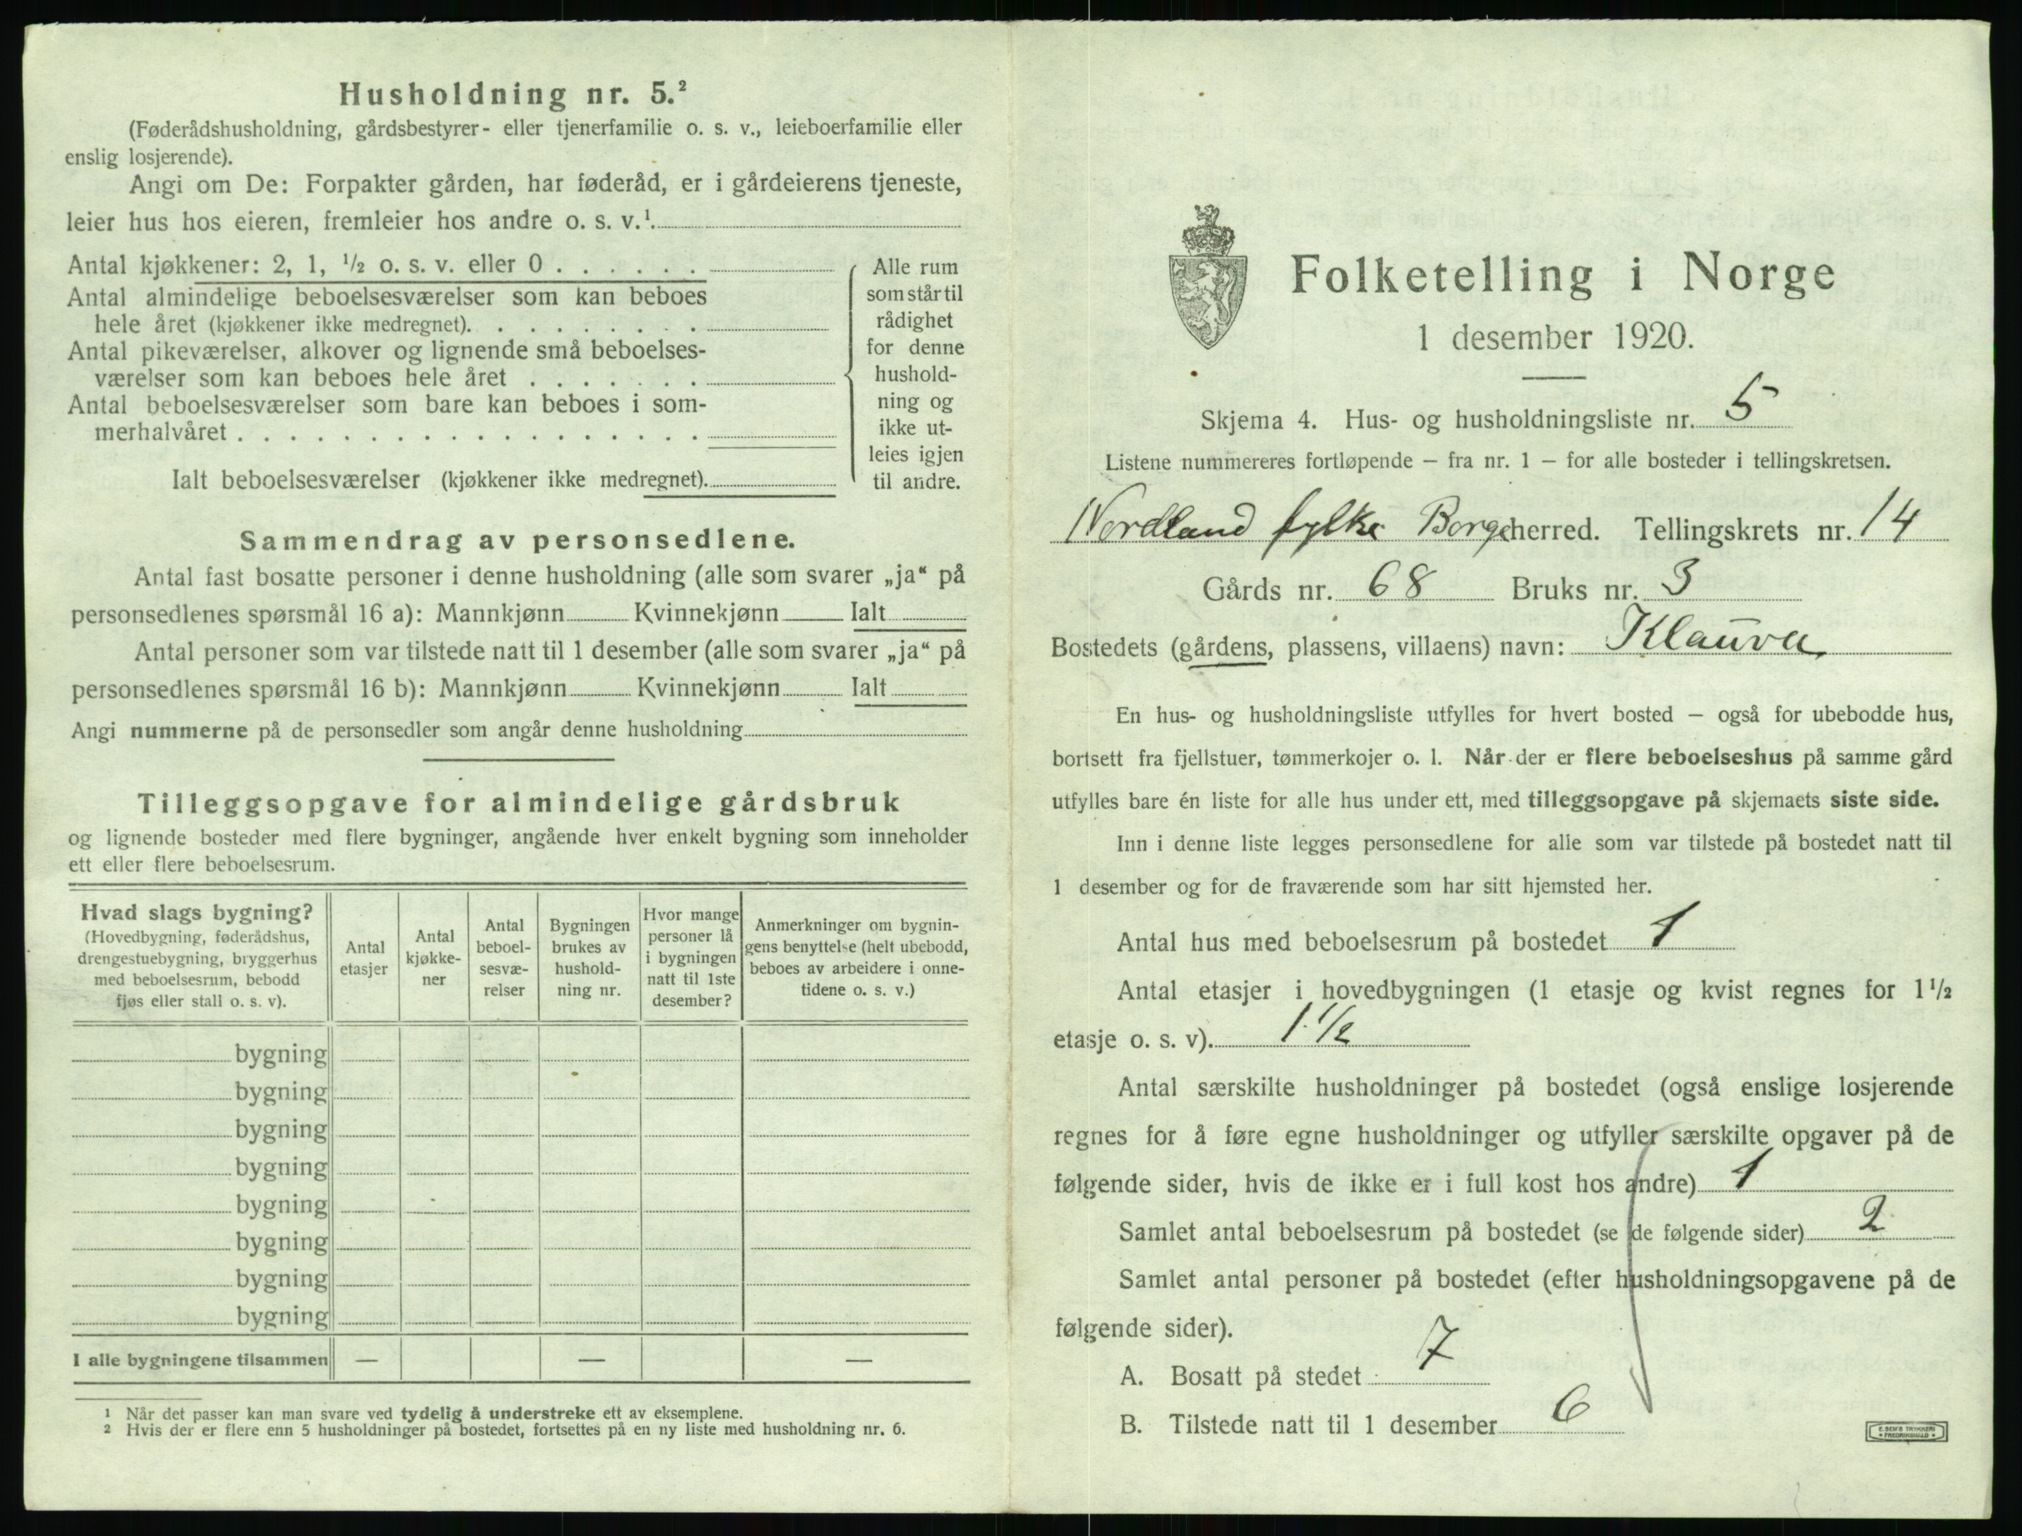 Husholdning nr. 5.²
(Føderådshusholdning, gårdsbestyrer- eller tjenerfamilie o. s. v., leieboerfamilie eller
enslig losjerende).
Angi om De: Forpakter gården, har føderåd, er i gårdeierens tjeneste,
leier hus hos eieren, fremleier hos andre o. s. v.¹
Antal kjøkkener: 2, 1, ½ o. s. v. eller 0 . . . . . .
Antal almindelige beboelsesværelser som kan beboes
hele året (kjøkkener ikke medregnet). . . . . . . . .
Antal pikeværelser, alkover og lignende små beboelses-
værelser som kan beboes hele året . . . . . . .
Antal beboelsesværelser som bare kan beboes i som-
merhalvåret . . . . . . . . . . . . . . . . . .
Ialt beboelsesværelser (kjøkkener ikke medregnet).
Alle rum
som står til
rådighet
for denne
hushold-
ning og
ikke ut-
leies igjen
til andre.
Sammendrag av personsedlene.
Antal fast bosatte personer i denne husholdning (alle som svarer „ja“ på
personsedlenes spørsmål 16 a): Mannkjønn Kvinnekjønn Ialt
Antal personer som var tilstede natt til 1 desember (alle som svarer „ja“ på
personsedlenes spørsmål 16 b): Mannkjønn Kvinnekjønn Ialt
Angi nummerne på de personsedler som angår denne husholdning
Tilleggsopgave for almindelige gårdsbruk
og lignende bosteder med flere bygninger, angående hver enkelt bygning som inneholder
ett eller flere beboelsesrum.
Hvad slags bygning?
(Hovedbygning, føderådshus,
drengestuebygning, bryggerhus
med beboelsesrum, bebodd
fjøs eller stall o. s. v).
Antal
etasjer
Antal
kjøkke-
ner
Antal
beboel-
sesvæ-
relser
Bygningen
brukes av
hushold-
ning nr.
Hvor mange
personer lå
i bygningen
natt til 1ste
desember?
Anmerkninger om bygnin-
gens benyttelse (helt ubebodd,
beboes av arbeidere i onne-
tidene o. s. v.)
bygning
bygning
bygning
bygning
bygning
bygning
bygning
bygning
I alle bygningene tilsammen — — —
¹ Når det passer kan man svare ved tydelig å understreke ett av eksemplene.
² Hvis der er flere enn 5 husholdninger på bostedet, fortsettes på en ny liste med husholdning nr. 6.
Folketelling i Norge
1 desember 1920.
Skjema 4. Hus- og husholdningsliste nr. 5
Listene nummereres fortløpende – fra nr. 1 – for alle bosteder i tellingskretsen.
Nordland fylke Borge herred. Tellingskrets nr. 14
Gårds nr. 68 Bruks nr. 3
Bostedets (gårdens, plassens, villaens) navn: Klauva
En hus- og husholdningsliste utfylles for hvert bosted – også for ubebodde hus,
bortsett fra fjellstuer, tømmerkojer o. l. Når der er flere beboelseshus på samme gård
utfylles bare én liste for alle hus under ett, med tilleggsopgave på skjemaets siste side.
Inn i denne liste legges personsedlene for alle som var tilstede på bostedet natt til
1 desember og for de fraværende som har sitt hjemsted her.
Antal hus med beboelsesrum på bostedet 1
Antal etasjer i hovedbygningen (1 etasje og kvist regnes for 1½
etasje o. s. v). 1 1/2
Antal særskilte husholdninger på bostedet (også enslige losjerende
regnes for å føre egne husholdninger og utfyller særskilte opgaver på de
følgende sider, hvis de ikke er i full kost hos andre) 1
Samlet antal beboelsesrum på bostedet (se de følgende sider) 2
Samlet antal personer på bostedet (efter husholdningsopgavene på de
følgende sider).
A. Bosatt på stedet 7
B. Tilstede natt til 1 desember 6